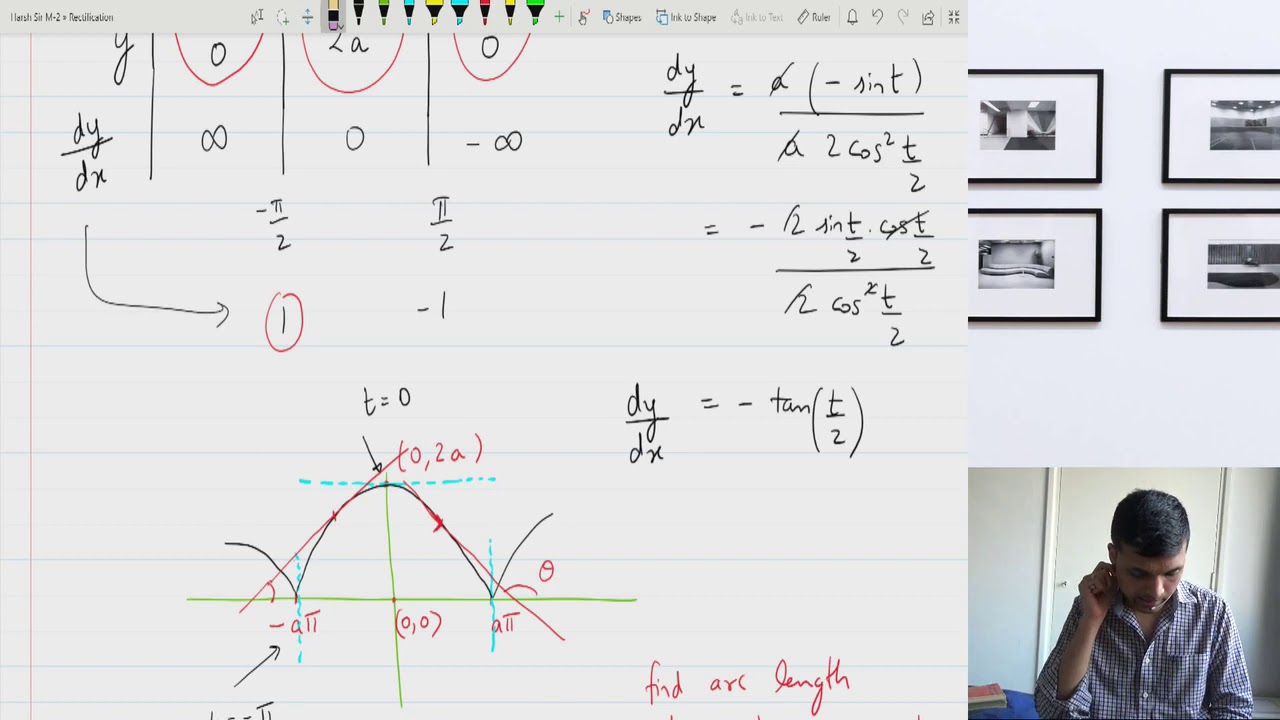 Harsh Sir M-2 » Rectification
Shapes Ink to Shape Ink to Text Ruler
y 0 2a 0
dy/dx ∞ 0 - ∞
-π/2 π/2
1 -1
dy/dx = a (- sin t) / a 2 cos² t/2
= - 2 sin t/2 . cos t/2 / 2 cos² t/2
dy/dx = - tan(t/2)
t = 0
(0, 2a)
θ
-aπ (0,0) aπ
t = -π
find arc length